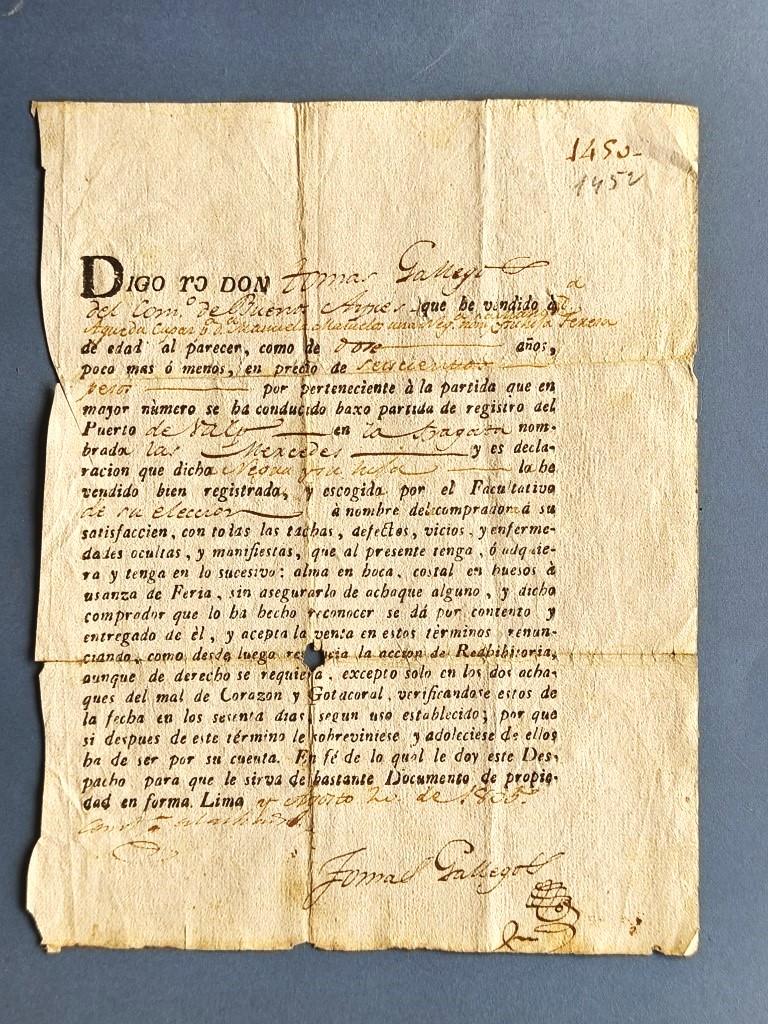 1450
1452
DIGO YO DON Tomas Gallegos
del Com.º de Buenos Ayres que he vendido à D.ª
Agueda
de edad al parecer, como de Dose años,
poco mas ó menos, en precio de seiscientos
pesos por perteneciente à la partida que en
mayor nùmero se ha conducido baxo partida de registro del
Puerto de Valp en la Fragata nom-
brada las Mercedes y es decla-
racion que dicha Negra la he
vendido bien registrada, y escogida por el Facultativo
de su eleccion à nombre del comprador à su
satisfaccien, con todas las tachas, defectos, vicios, y enferme-
dades ocultas, y manifiestas, que al presente tenga, ó adquie-
ra y tenga en lo sucesivo: alma en boca, costal en huesos à
usanza de Feria, sin asegurarlo de achaque alguno, y dicho
comprador que lo ha hecho reconocer se dá por contento y
entregado de èl, y acepta la venta en estos tèrminos renun-
ciando, como desde luega renuncia la accion de Redhibitoria,
aunque de derecho se requiera, excepto solo en los dos acha-
ques del mal de Corazon y Gotacoral, verificandose estos de
la fecha en los sesenta dias, segun uso establecido; por que
si despues de este tèrmino le sobreviniese y adoleciese de ellos
ha de ser por su cuenta. En fé de lo qual le doy este Des-
pacho para que le sirva de bastante Documento de propie-
dad en forma. Lima y Agosto de
Tomas Gallegos